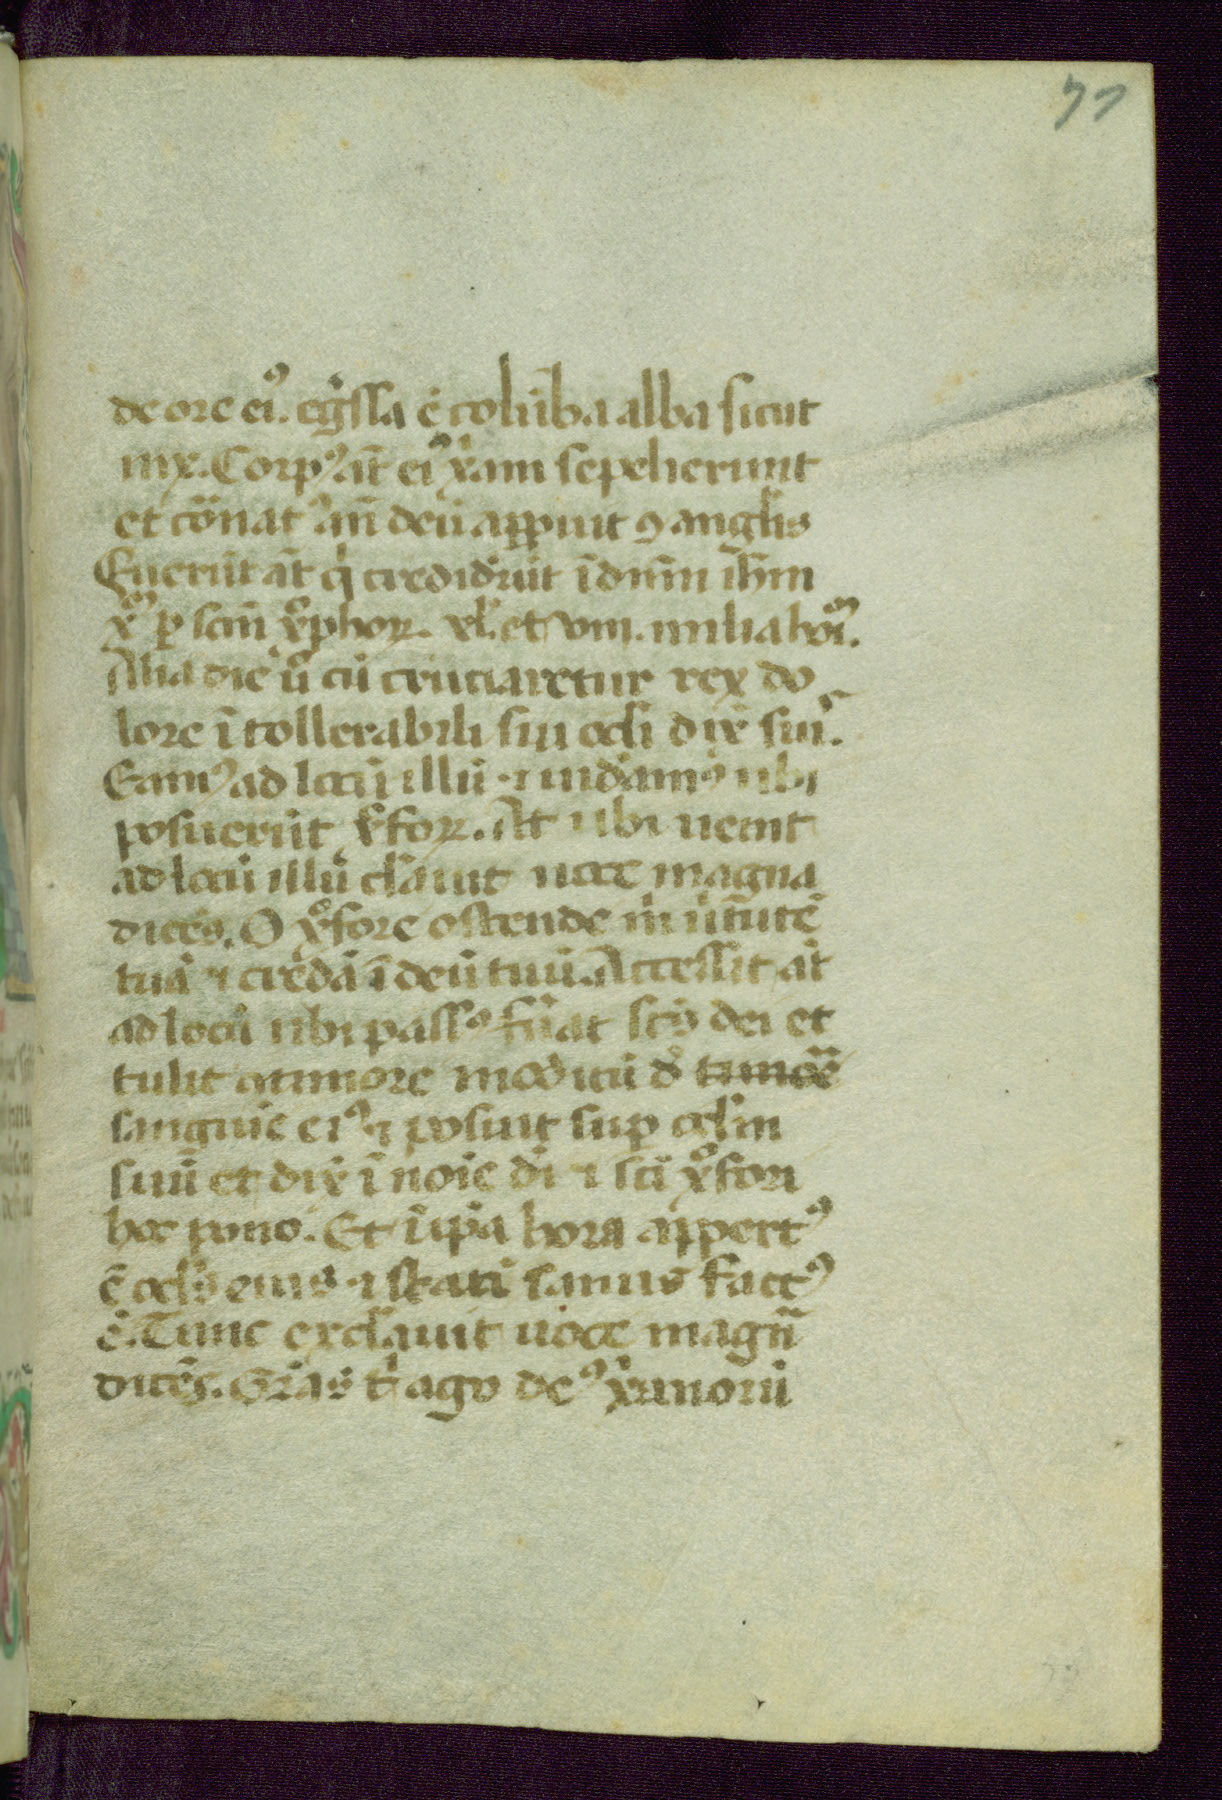 77
de ore ei᷒. eg̓ssa ē colūba alba sicut
nix. Corp᷒ at̄ ei᷒ xp̄iani sepelierunt
et
Fuerūt at̄ q̇ crediderūt ī dn̄m ih̄m
xp̄m p̱ scm̄ xp̄phoꝝ. et viii. milia hoı̄m.
Alia die ū cū cruciaretur rex do
lore ītollerabili sui ocl̓i dix̄ suis.
Eam᷒ ad locū illū ⁊ uideam᷒ ubi
posuerūt xp̄foꝝ. At ubi uenit
ad locū illū cla̓uit uoce magna
dicēs. O xp̄fore ostende m̓ u̓tutē
tuā ⁊ credā ī deū tuū. Accessit at̄
ad locū ubi pass᷒ fu̓at scs̄ dei et
tulit modicū d̓
sanguīe ei᷒ ⁊ posuit sup̱ ocl̓m
suū et dix̄ ī noīe dı̄ ⁊ scı̄ xp̄fori
hoc pono. Et ī ip̄a hora appert᷒
ē ocl̓s eius ⁊ statī sanus fact᷒
ē. Tunc excla̓uit uoce magnā
dicēs. Gr̄as t̓ ago de᷒ xp̄ianoꝝ